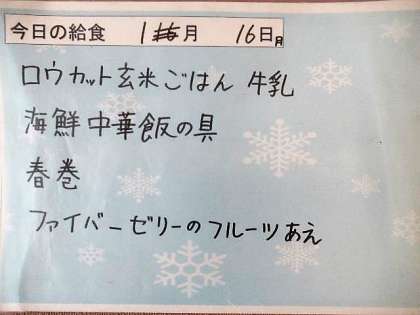 今日の給食 1月 16日月
ロウカット玄米ごはん 牛乳
海鮮中華飯の具
春巻
ファイバーゼリーのフルーツあえ